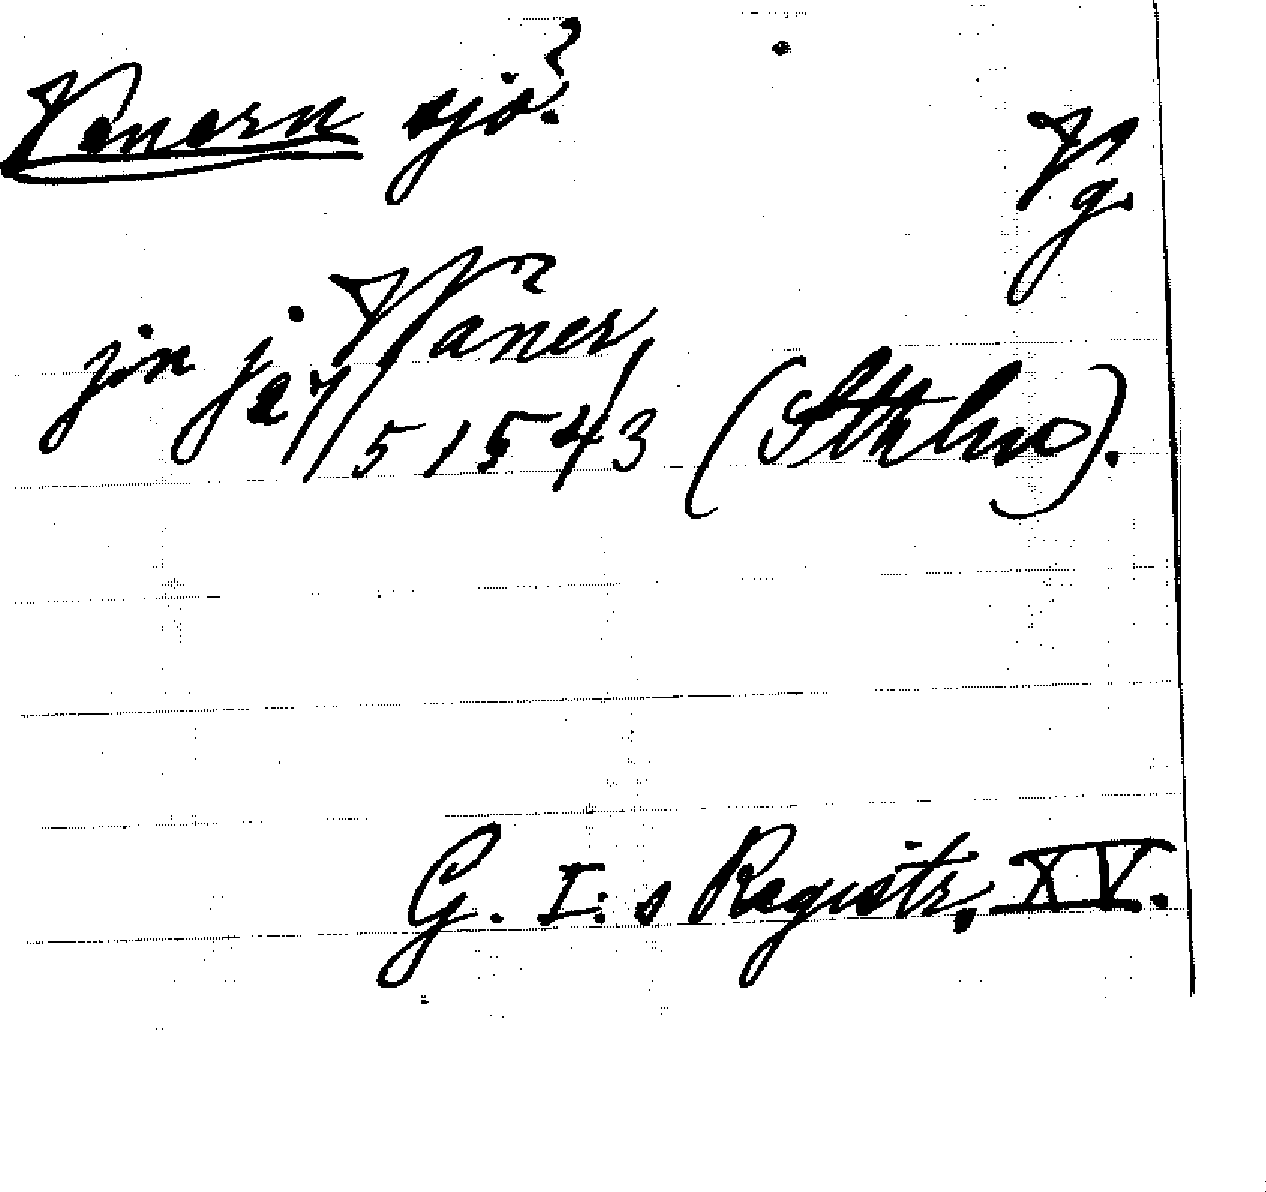 Venern sjö?
Vg.
jn je Wäner,
7/5 1543 (Sthlm).
G. I:s Registr. XV.